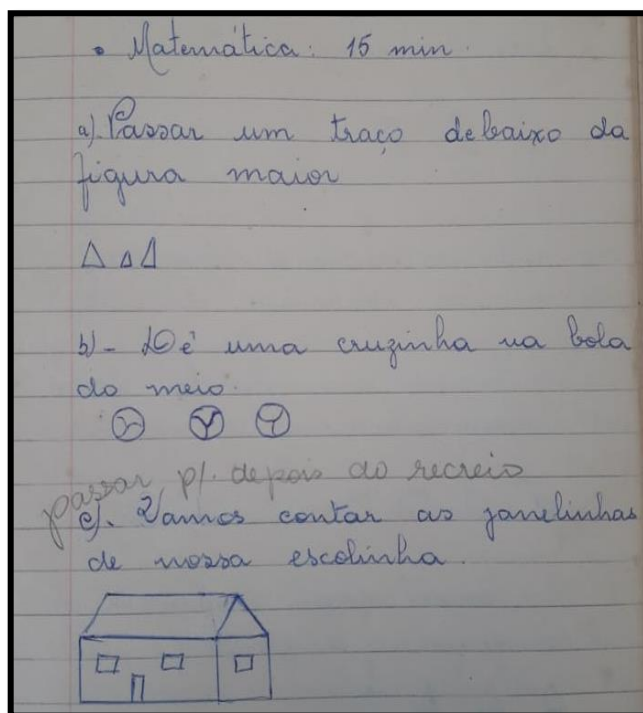 • Matemática: 15 min.
a) Passar um traço debaixo da
figura maior
b) - Dê uma cruzinha na bola
do meio.
passar p/. depois do recreio
c). Vamos contar as janelinhas
de nossa escolinha.